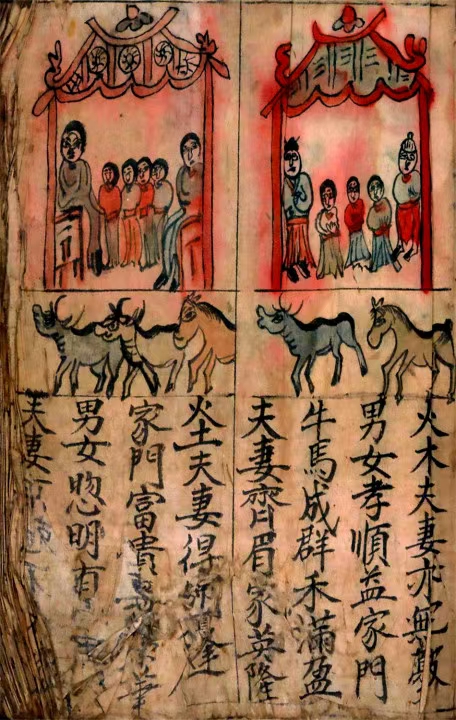 火木夫妻亦
男女孝順益家門
牛馬成群禾滿盈
夫妻齊眉家英隆
火土夫妻得逢
家門富貴華
男女愡明有
夫妻